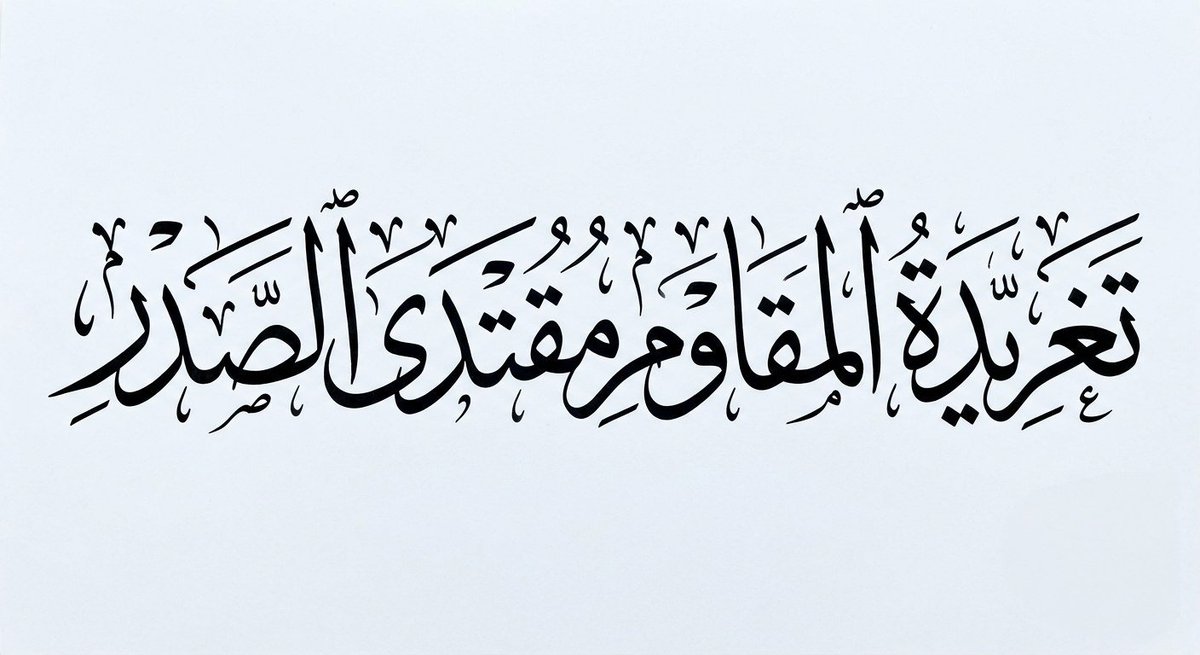 تَغْرِيدَةُ ٱلْمُقَاوِمِ مُقْتَدَى ٱلصَّدْرِ